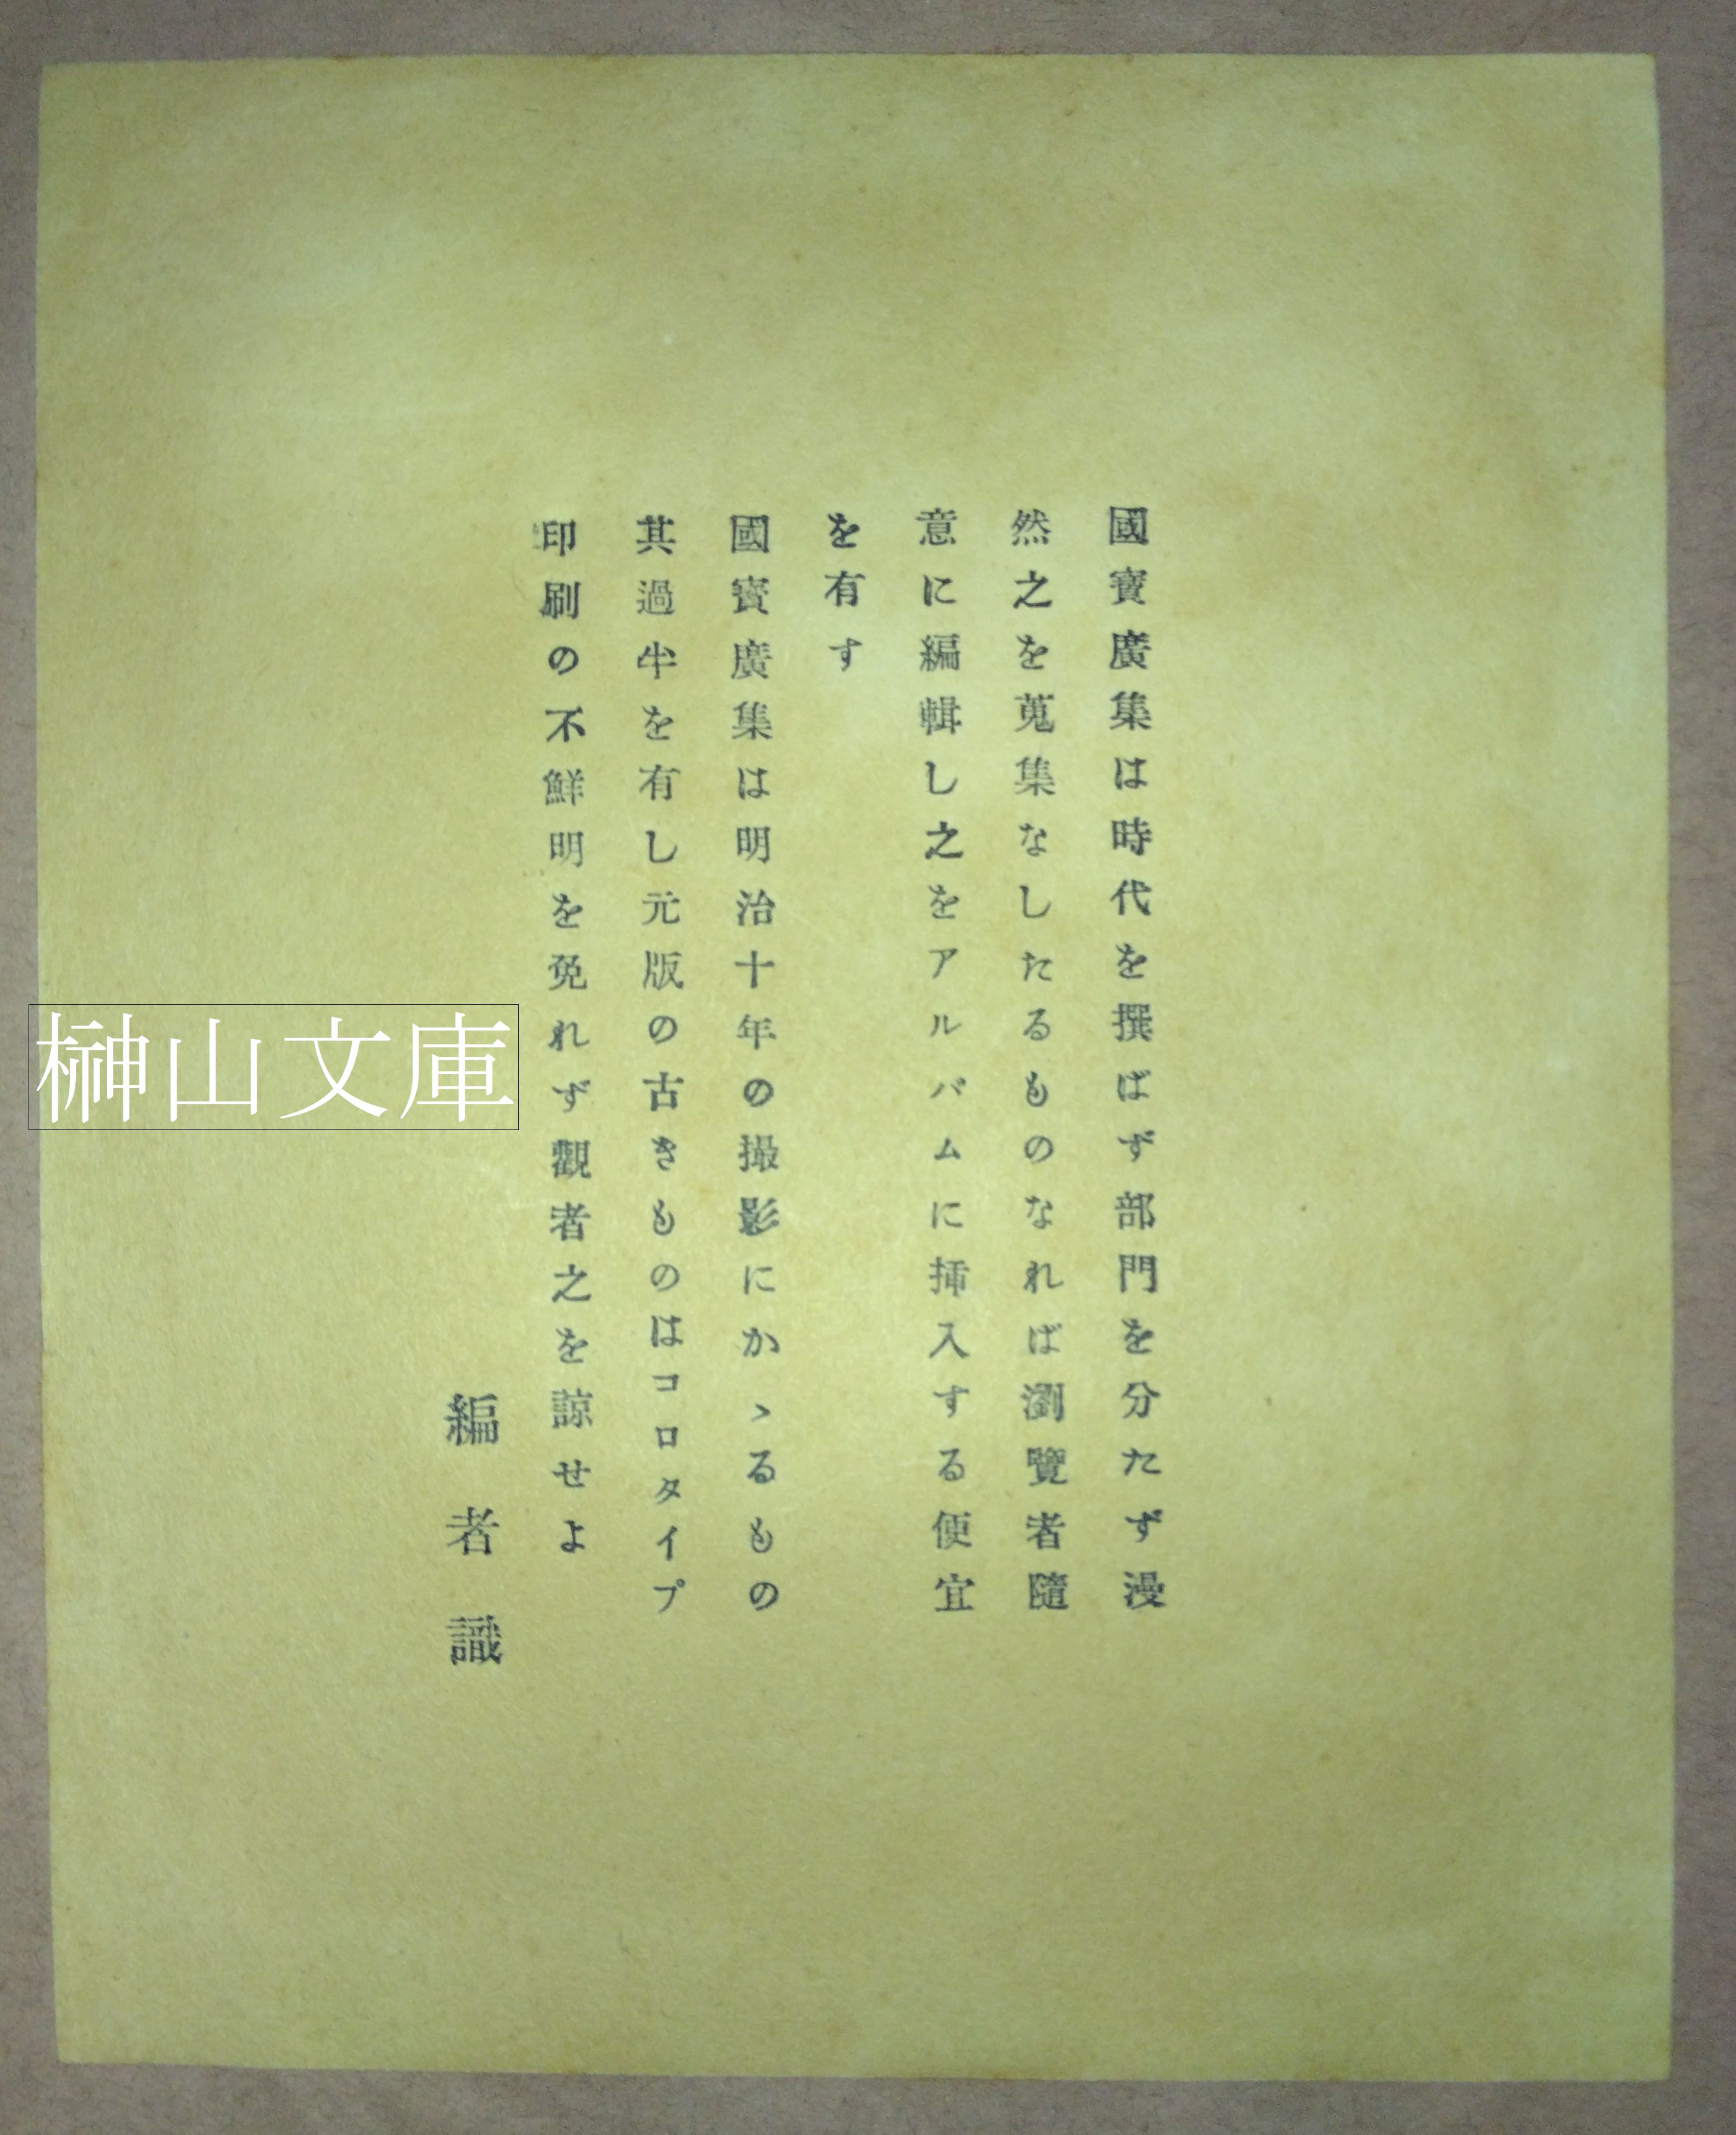 國寶廣集は時代を撰ばず部門を分たず漫
然之を蒐集なしたるものなれば瀏覽者隨
意に編輯し之をアルバムに挿入する便宜
を有す
國寶廣集は明治十年の撮影にかゝるもの
其過半を有し元版の古きものはコロタイプ
印刷の不鮮明を免れず觀者之を諒せよ
編者識
榊山文庫